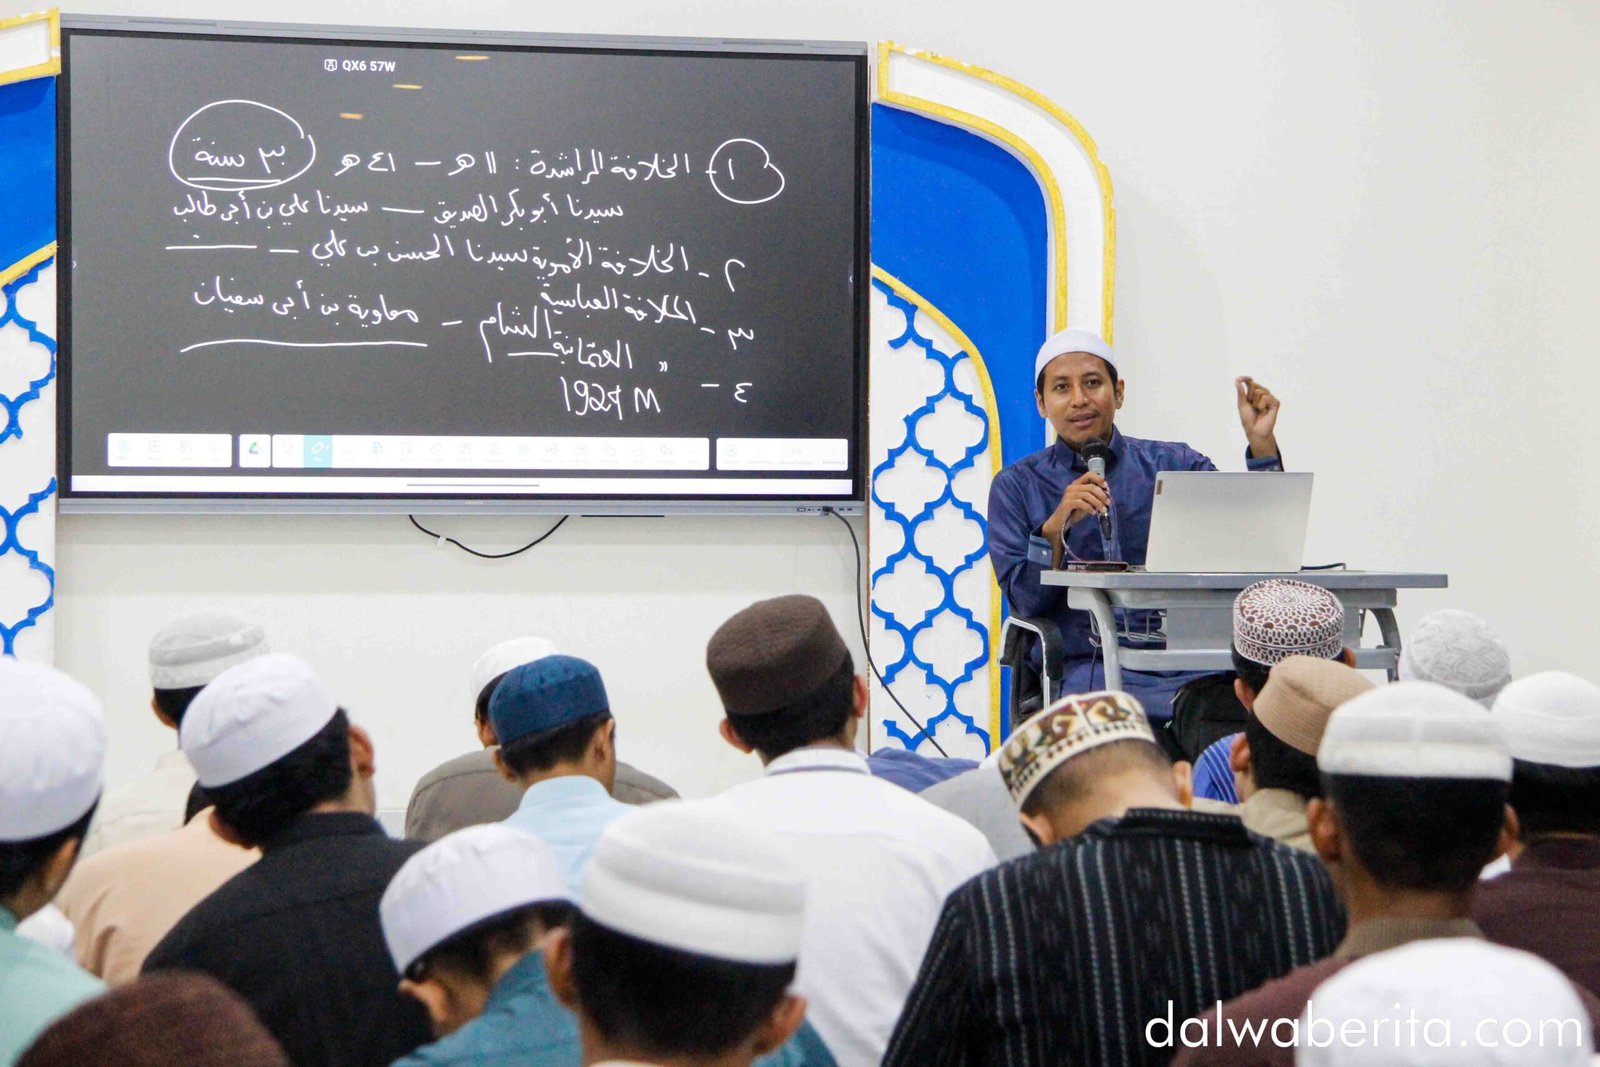 QX6 57W
١- الخلافة الراشدة : ١١ هـ — ٤١ هـ ٣٠ سنة
سيدنا أبو بكر الصديق — سيدنا علي بن أبي طالب
٢- الخلافة الأموية سيدنا الحسن بن علي —
٣- الخلافة العباسية الشام — معاوية بن أبي سفيان
٤- " العثمانية
1924 M
dalwaberita.com